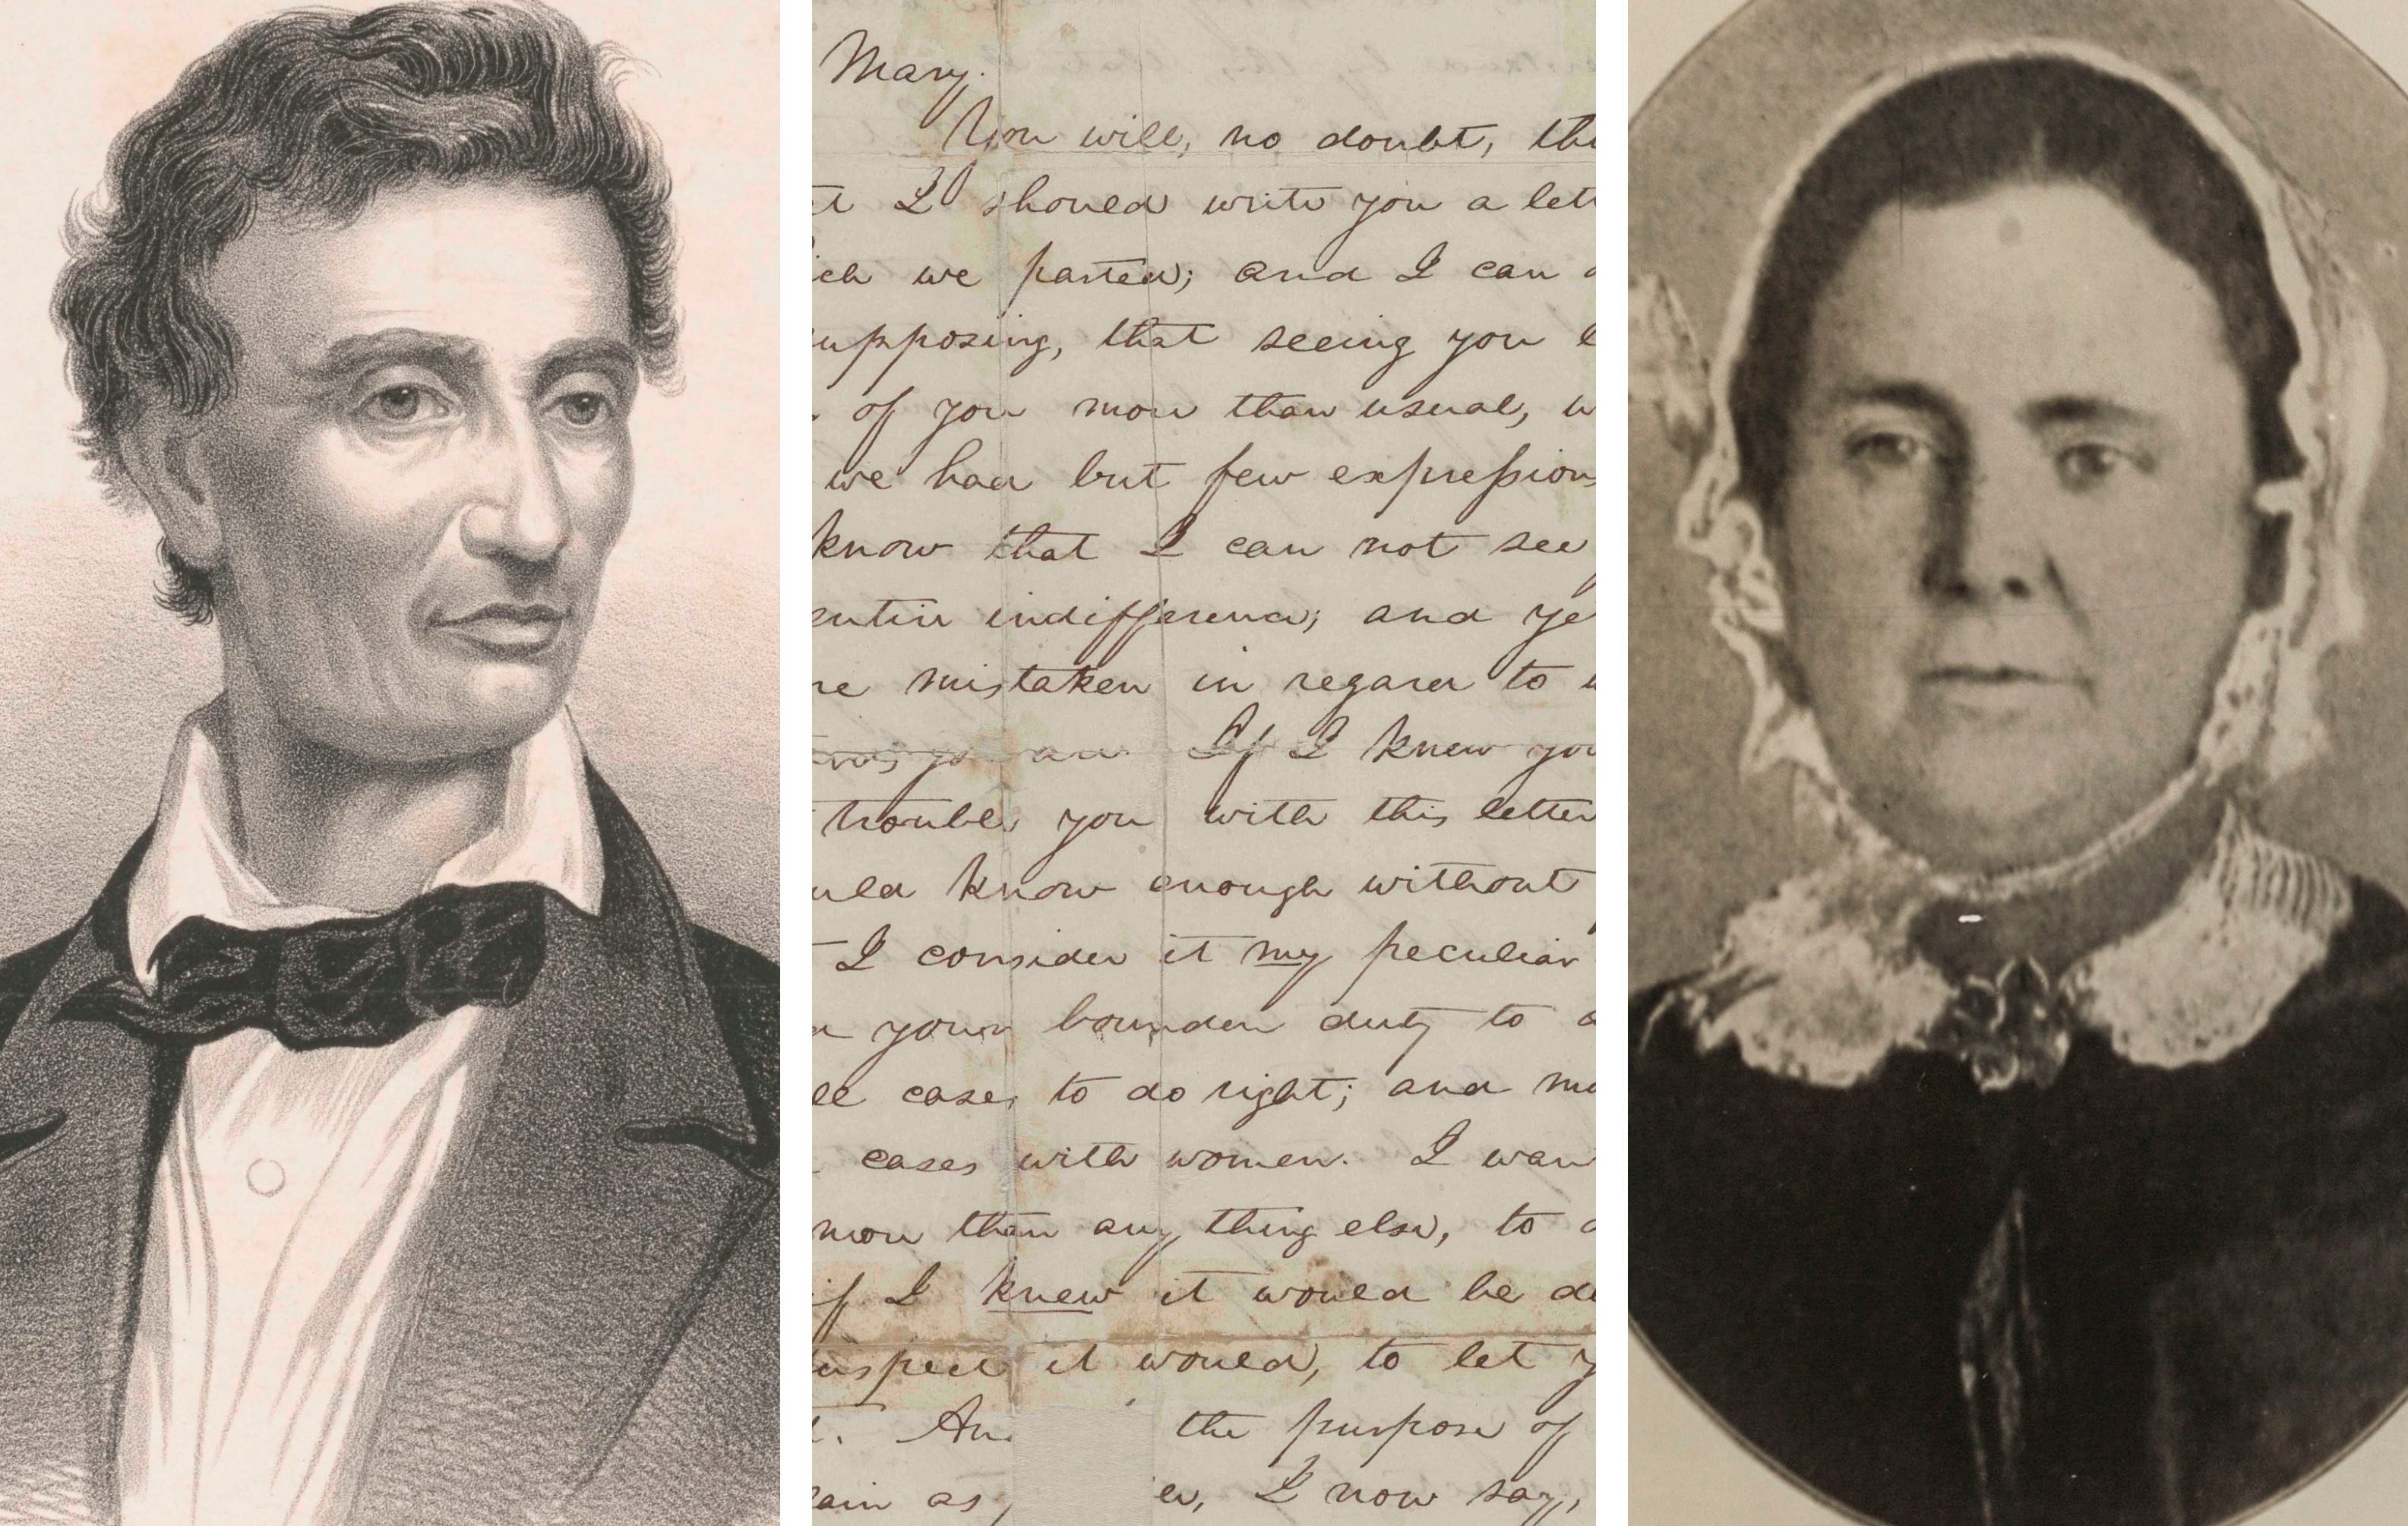 Mary.
You will, no doubt, th
I should write you a let
ich we parted; and I can
upposing, that seeing you
of you more than usual, w
we had but few expressions
know that I can not see
entire indifference; and ye
re mistaken in regard to
If I knew you
trouble you with this letter
uld know enough without
I consider it my peculiar
your bounden duty to
ll cases to do right; and mo
cases with women. I wan
more than any thing else, to
if I knew it would be do
uspect it would, to let y
the purpose of
lain as I now say,